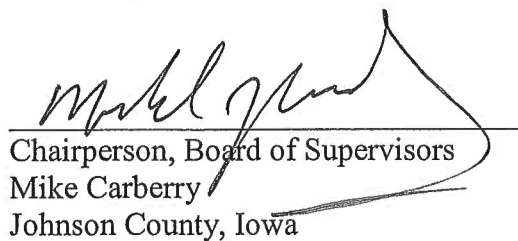 Chairperson, Board of Supervisors
Mike Carberry
Johnson County, Iowa